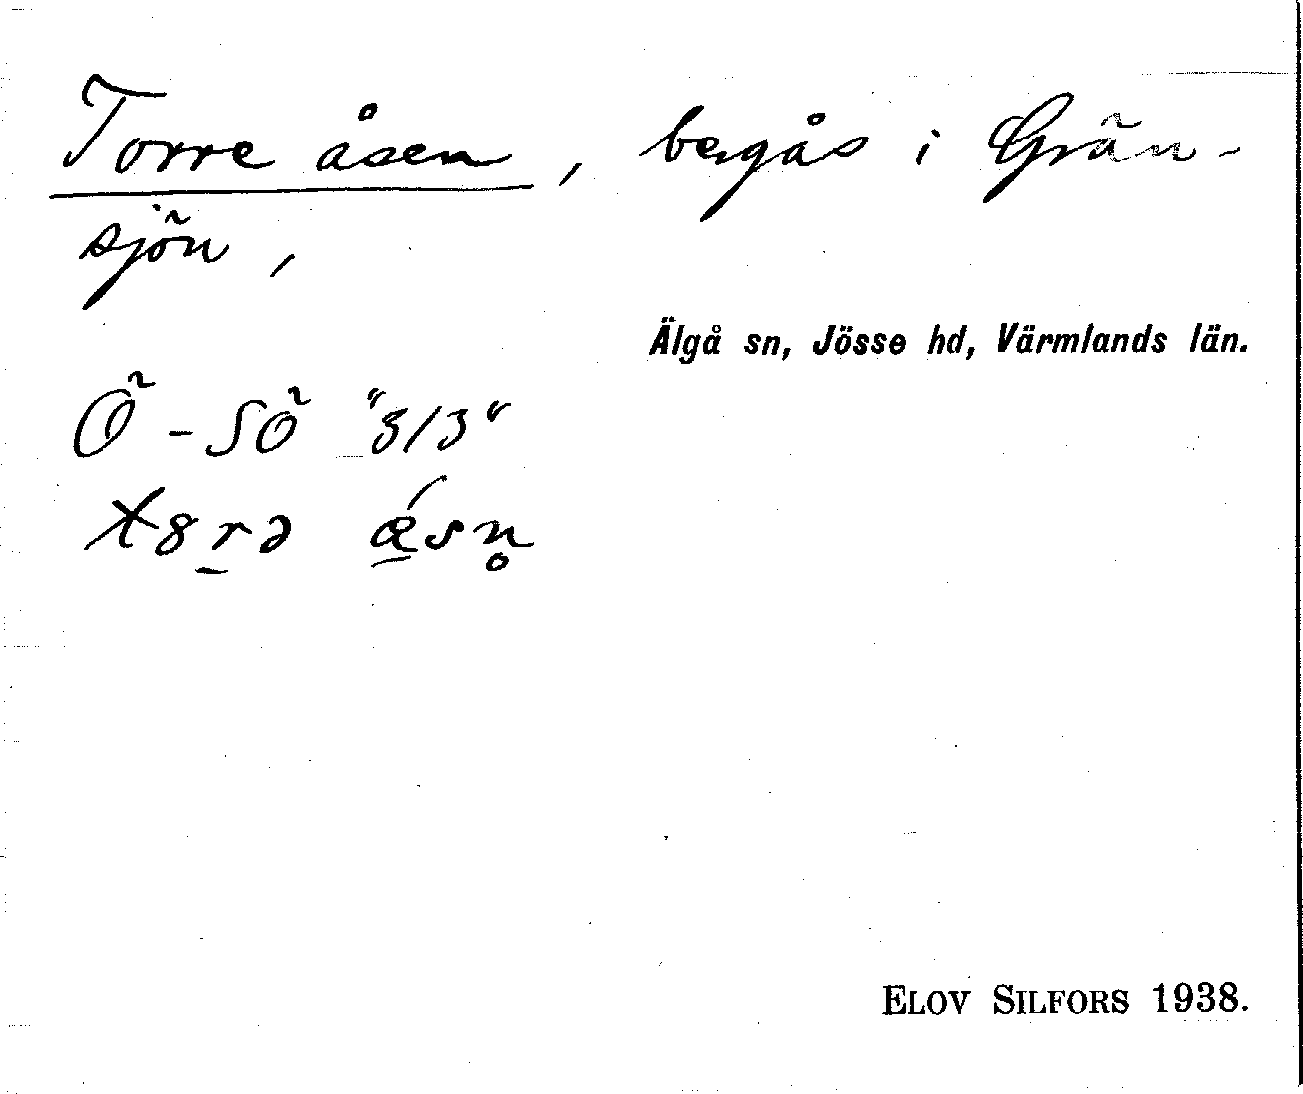 Torre åsen, bergås i Grän-
sjön,
Älgå sn, Jösse hd, Värmlands län.
Ö-SÖ "3/3"
ELOV SILFORS 1938.